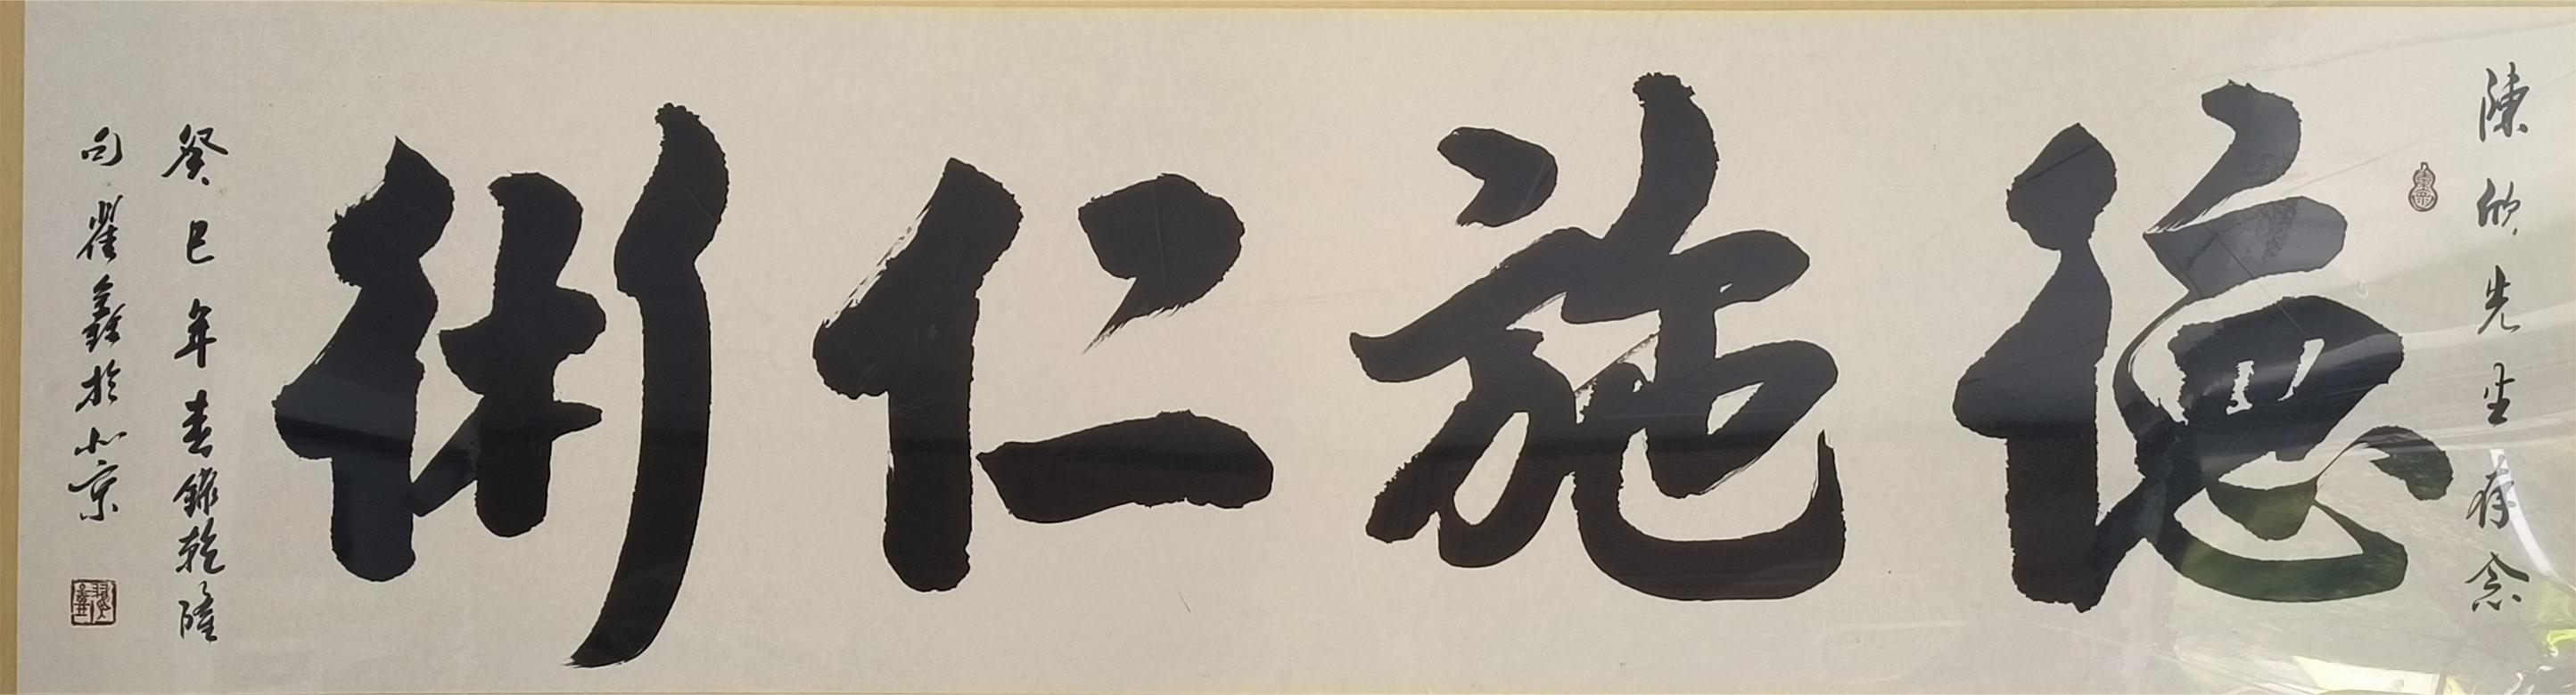 陳欣先生存念
德施仁術
癸巳年春錄乾隆
句翟鑫於北京
翟鑫